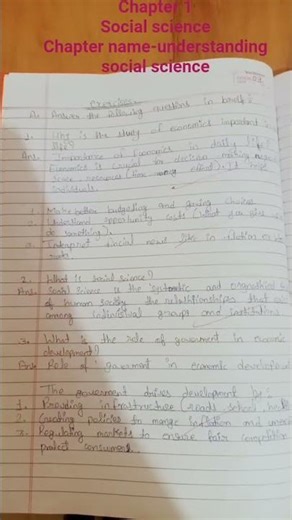 Chapter 1
Social science
Chapter name-understanding
social science
Exercise
A. Answer the following questions in brief?
1. Why is the study of economics important
life?
Ans. Importance of Economics in daily life?
Economics is crucial for decision making
scare resources
individuals.
1. Make better budgeting and saving choices
2. Understand opportunity costs (what you give
do something).
3. Interpret social news like
2. What is social science?
Ans. Social science is the systematic and
of human society the relationships that
among individual groups and institutions
3. What is the role of goverment in economic
development?
Ans. Role of goverment in economic development
The goverment drives development by:
1. Providing infrastructure (roads school
2. Creating policies to manage inflation and
3. Regulating markets to ensure fair competition
protect consumers.